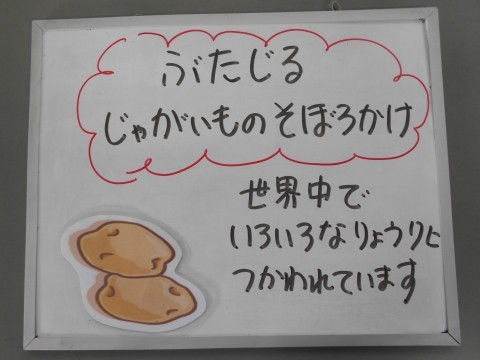 ぶたじる
じゃがいものそぼろかけ
世界中で
いろいろなりょうりに
つかわれています